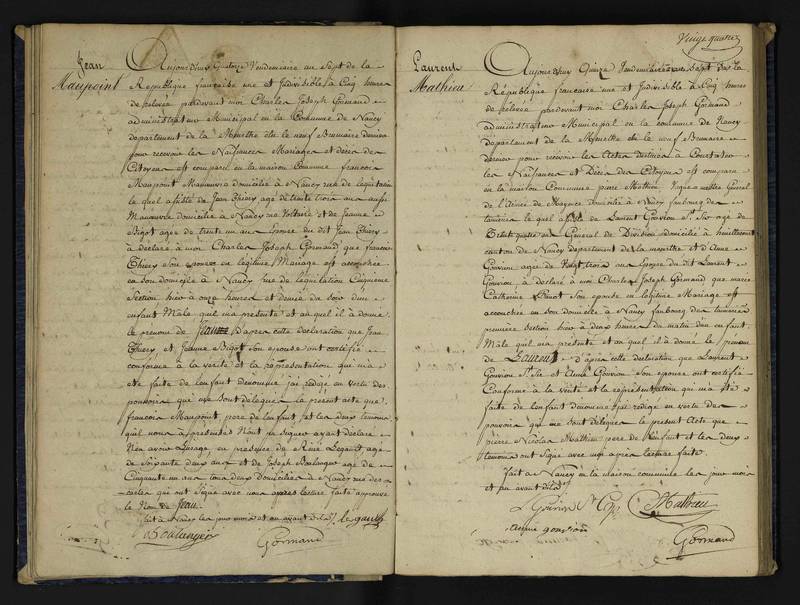 Jean
Maupoint
Aujourd'huy Quatorze Vendemiaire an Sept de la
Republique française une et Indivisible à Cinq heures
de pardevant moi Charles Joseph Gormand
administrateur Municipal en la Commune de Nancy
departement de la Meurthe élu le neuf Brumaire dernier
pour recevoir les Naissances Mariages et décès des
Citoyens est comparu en la maison Commune francois
Maupoint Manoeuvre domicilié à Nancy rue de legislation
le quel assisté de Jean Thiery agé de trente trois ans aussi
Manoeuvre domicilié à Nancy rue Voltaire et de Jeanne
Bigot agée de trente un ans Epouse du dit Jean Thiery
à déclaré à moi Charles Joseph Gormand que
Thiery Son épouse en légitime Mariage est accouchée
en son domicile à Nancy rue de législation Cinquieme
Section hier à onze heures et demie du soir d'un
enfant Male quil ma présenté et au quel il a donné
le prenom de Jean D'apres cette déclaration que Jean
Thiery et Jeanne Bigot Son epouse ont certifiée
conforme à la verité et la représentation qui m'a
été faite de l'enfant dénommé j'ai rédigé en vertu des
pouvoirs qui me sont délégués le présent acte que
francois Maupoint pere de l'enfant et les deux temoins
qu'il nous à présentés N'ont pu signer ayant déclaré
Nen avoir L'usage en présence de René Legault agé
de Soixante deux ans et de Joseph Boulanger agé de
Cinquante un ans tous deux domiciliés à Nancy rue des
qui ont signé avec nous après lecture faite approuvé
le Nom de Jean.
fait à Nancy les jour mois et an avant dits. le gault
J Boulanger Gormand
Vingt quatre
Laurent
Mathieu
Aujourd'huy Quinze Vendemiaire an Sept de la
République francaise une et Indivisible à Cinq heures
de pardevant moi Charles Joseph Gormand
administrateur Municipal en la commune de Nancy
departement de la Meurthe élu le neuf Brumaire
dernier pour recevoir les Actes destinés à Constater
les Naissances et Décès des Citoyens est comparu
en la maison Commune pierre Mathieu General
de l'Armée de Mayence domicilié à Nancy faubourg des
tanneries le quel assisté de Laurent Gouvion St. Sir agé de
Trente quatre ans Général de Division domicilié à
canton de Nancy departement de la meurthe et d'Anne
Gouvion agée de Vingt trois ans Epouse du dit Laurent
Gouvion à déclaré à moi Charles Joseph Gormand que marie
Catherine Son epouse en légitime Mariage est
accouchée en son domicile à Nancy faubourg des tanneries
première Section hier à deux heures du matin d'un enfant
Male quil ma présenté et au quel il a donné le prenom
de Laurent d'après cette déclaration que Laurent
Gouvion St. Sir et Anne Gouvion Son epouse ont certifié
Conforme à la verité et la représentation qui m'a été
faite de l'enfant dénommé j'ai rédigé en vertu des
pouvoirs qui me sont délégués le présent Acte que
pierre Nicolas Mathieu pere de l'enfant et les deux
temoins ont signé avec moi après lecture faite.
fait à Nancy en la maison commune les jour mois
et an avant dits
L Gouvion St Cyr Mathieu
anne gouvion
Gormand